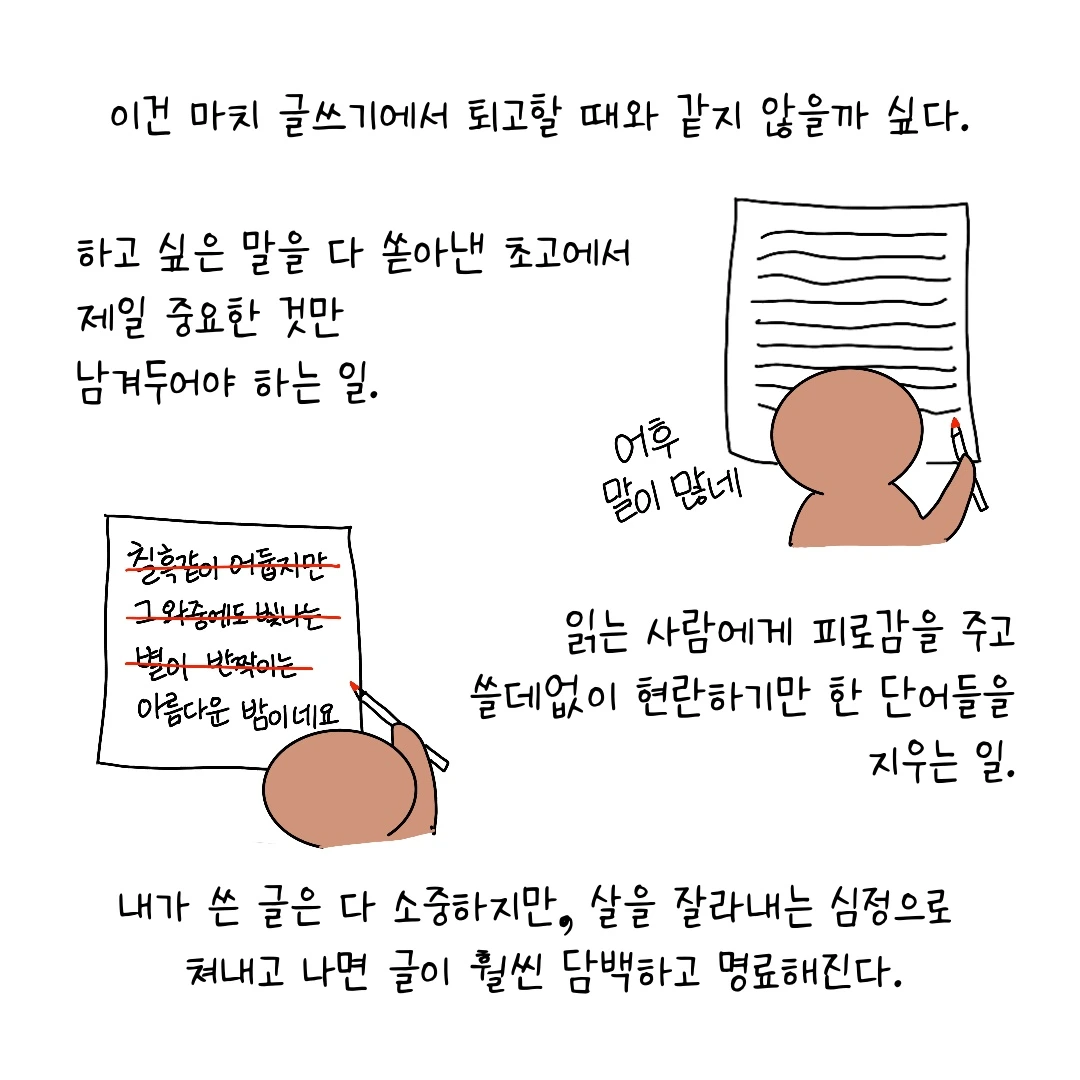 이건 마치 글쓰기에서 퇴고할 때와 같지 않을까 싶다.
하고 싶은 말을 다 쏟아낸 초고에서
제일 중요한 것만
남겨두어야 하는 일.
어후
말이 많네
칠흑같이 어둡지만
그 와중에도 빛나는
별이 반짝이는
아름다운 밤이네요
읽는 사람에게 피로감을 주고
쓸데없이 현란하기만 한 단어들을
지우는 일.
내가 쓴 글은 다 소중하지만, 살을 잘라내는 심정으로
쳐내고 나면 글이 훨씬 담백하고 명료해진다.